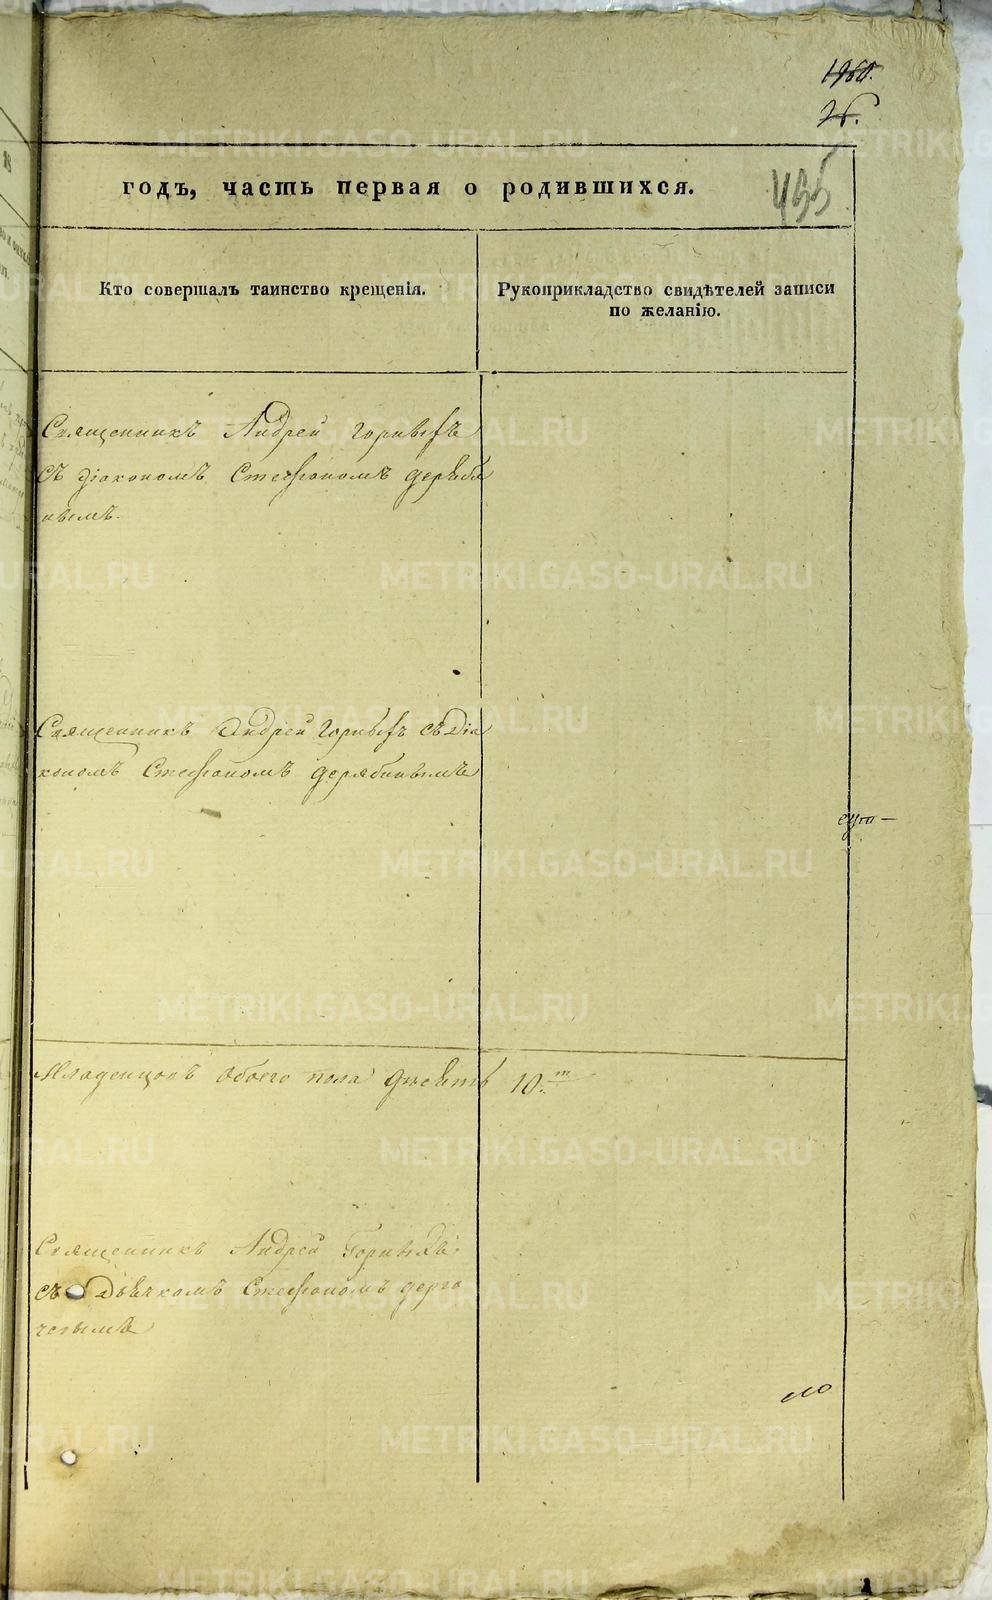 1960.
26.
годъ, часть первая о родившихся.
455
Кто совершалъ таинство крещенія.
Рукоприкладство свидѣтелей записи
по желанію.
Священникъ Андрей Горныхъ
съ діакономъ Стефаномъ Деряби
нымъ.
Священникъ Андрей Горныхъ съ Діа
кономъ Стефаномъ Дерябинымъ
Младенцовъ обоего пола
10.
Священникъ Андрей Горныхъ
съ Дьячкомъ Стефаномъ
METRIKI.GASO-URAL.RU